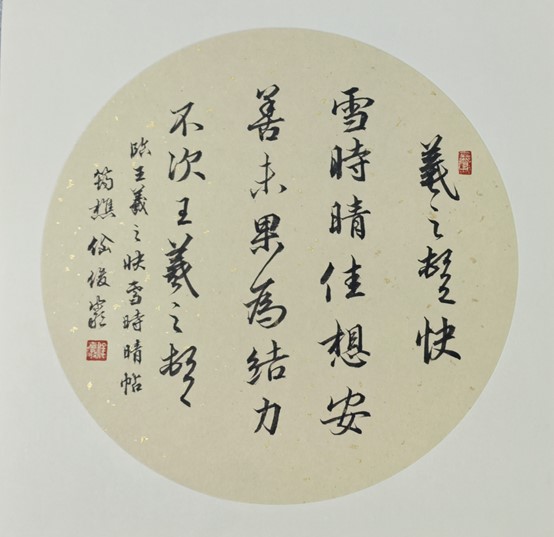 羲之頓快
雪時晴佳想安
善未果為結力
不次王羲之頓
臨王羲之快雪時晴帖
筠樵俊